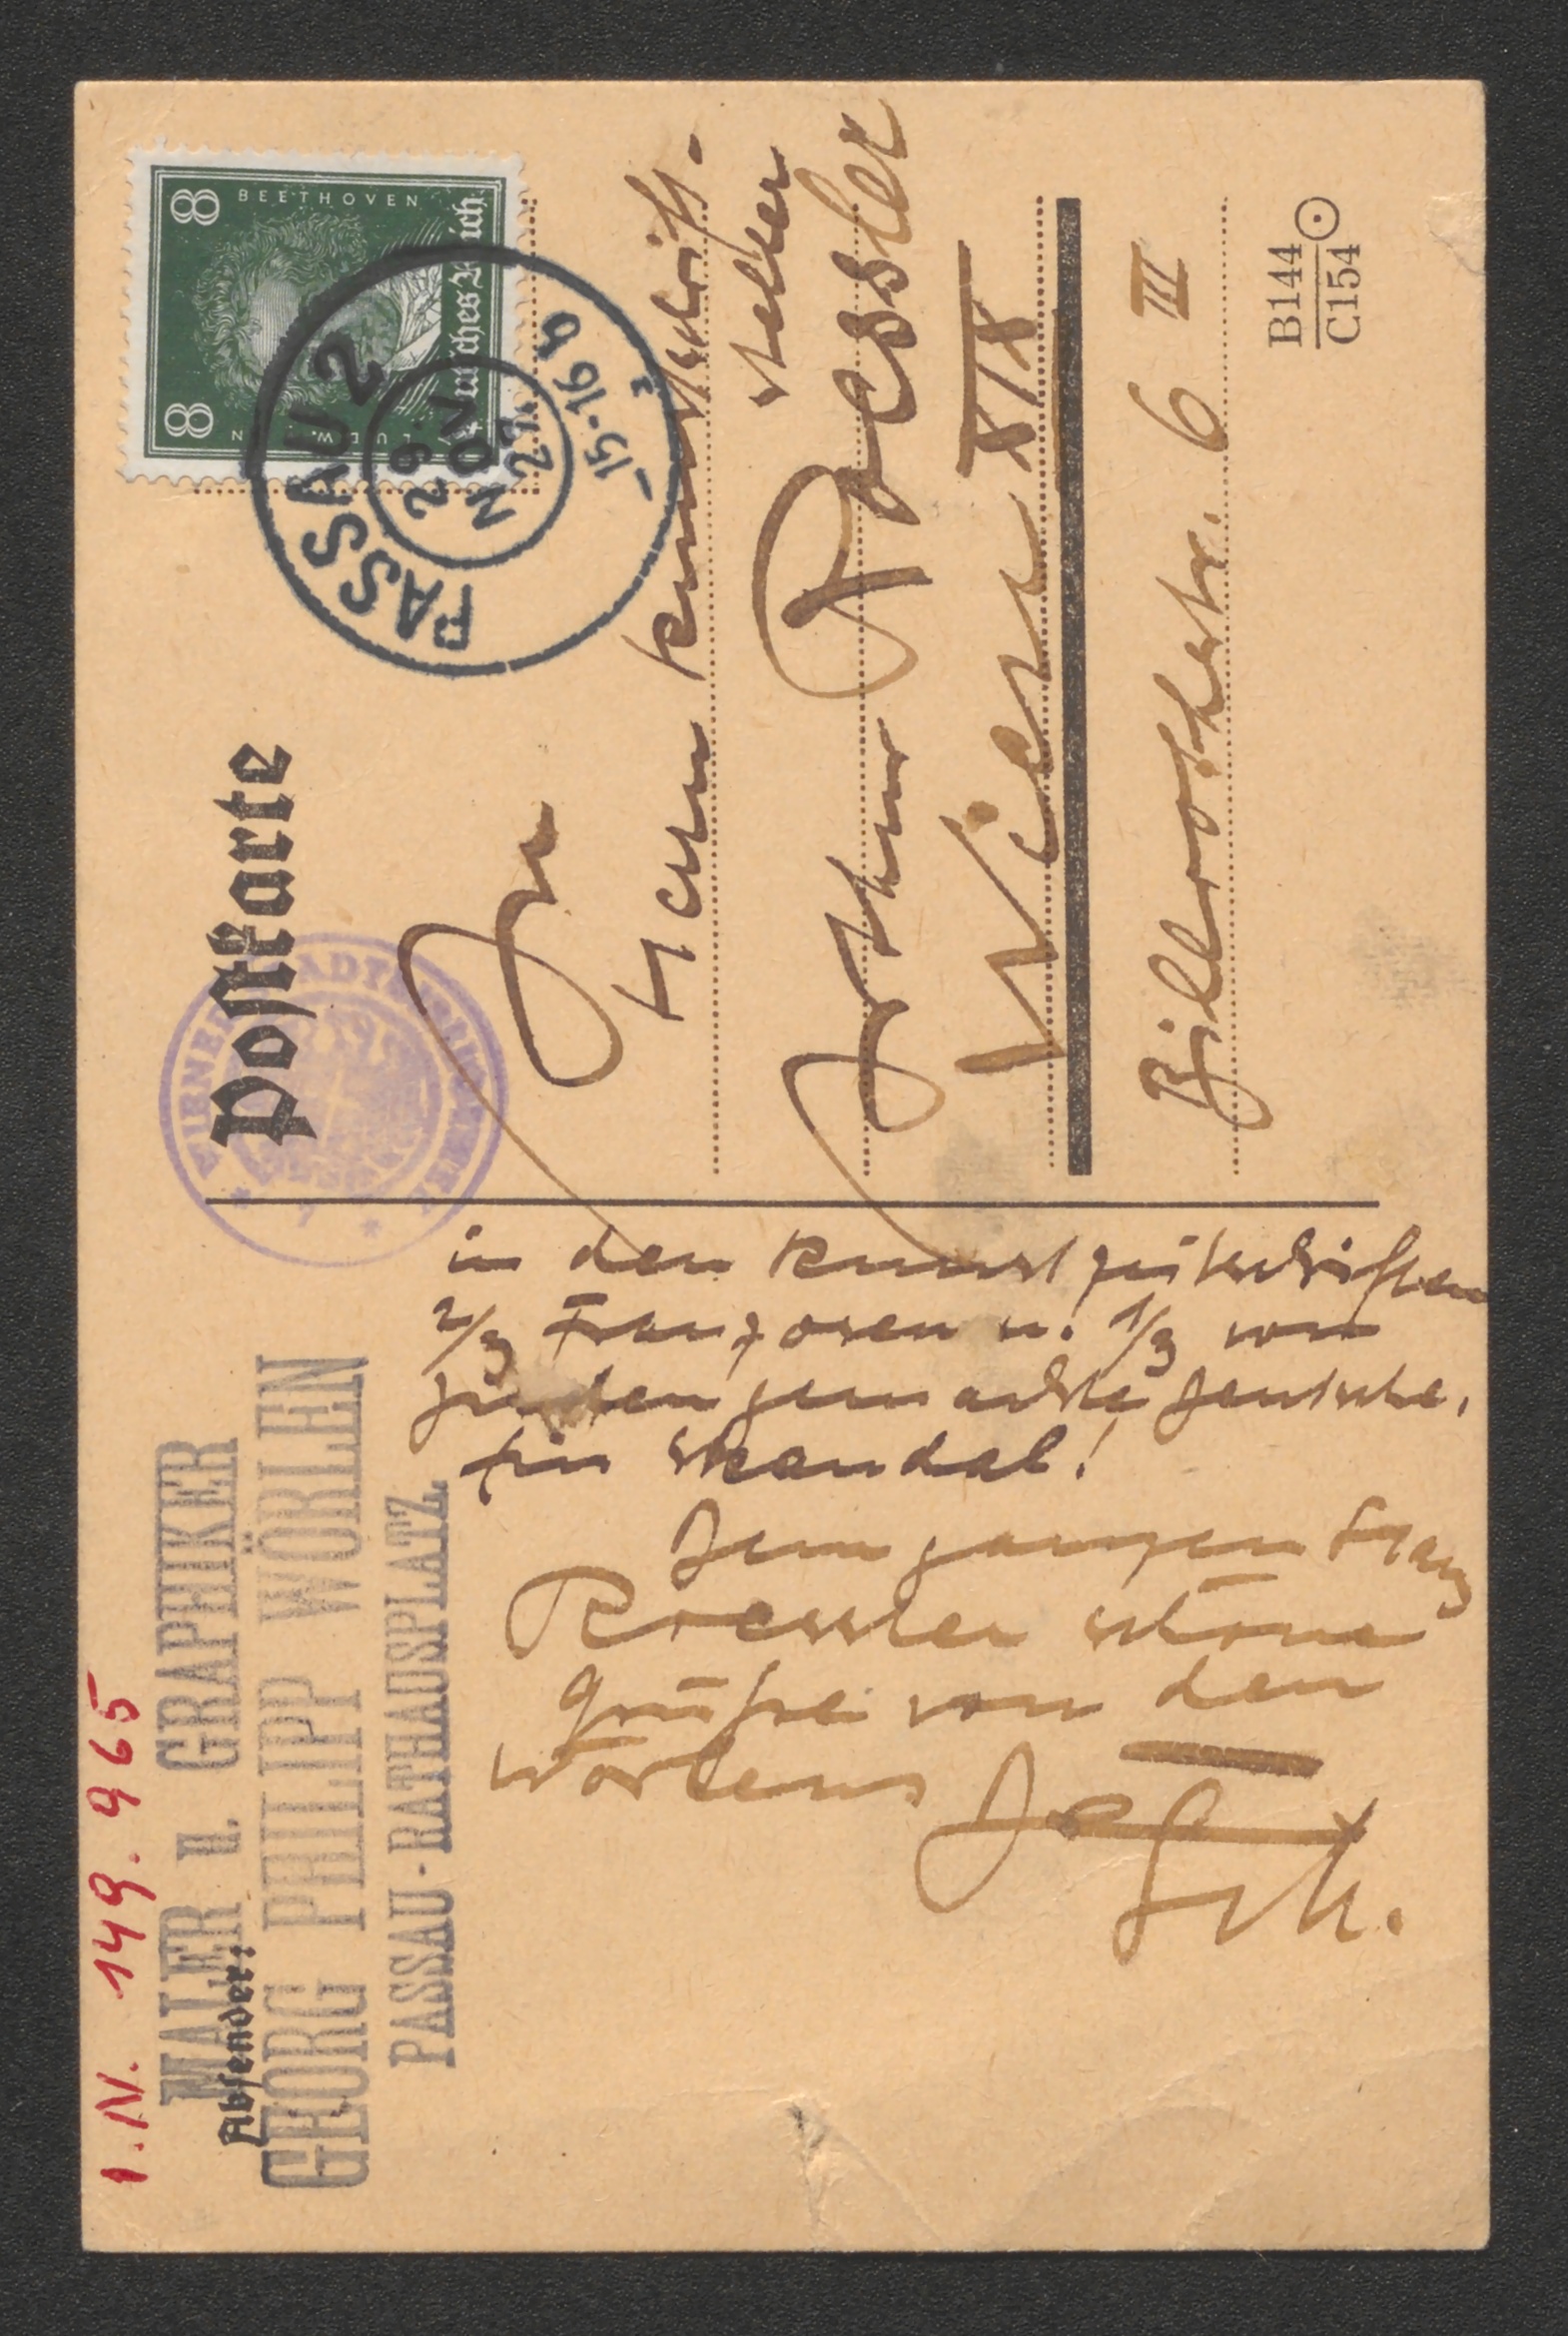 I.N. 149.965
MALER u. GRAPHIKER
Absender:
GEORG PHILIPP WÖRLEN
PASSAU-RATHAUSPLATZ
in den Kunstzeitschriften
2/3 Franzosen u. 1/3 von
Juden gemachte Deutsche.
Ein Skandal!
Dem ganzen Haus
Roessler schöne
Grüße von den
Wörlens
Postkarte
WIENER STADTBIBLIOTHEK
8 BEETHOVEN 8
LUDW. VAN
Deutsches Reich
PASSAU 2
29.
NOV
27.
15-16 N
Herrn Kunstschrift-
steller
Arthur Roessler
Wien XIX
Billrothstr. 6 III
B144
C154